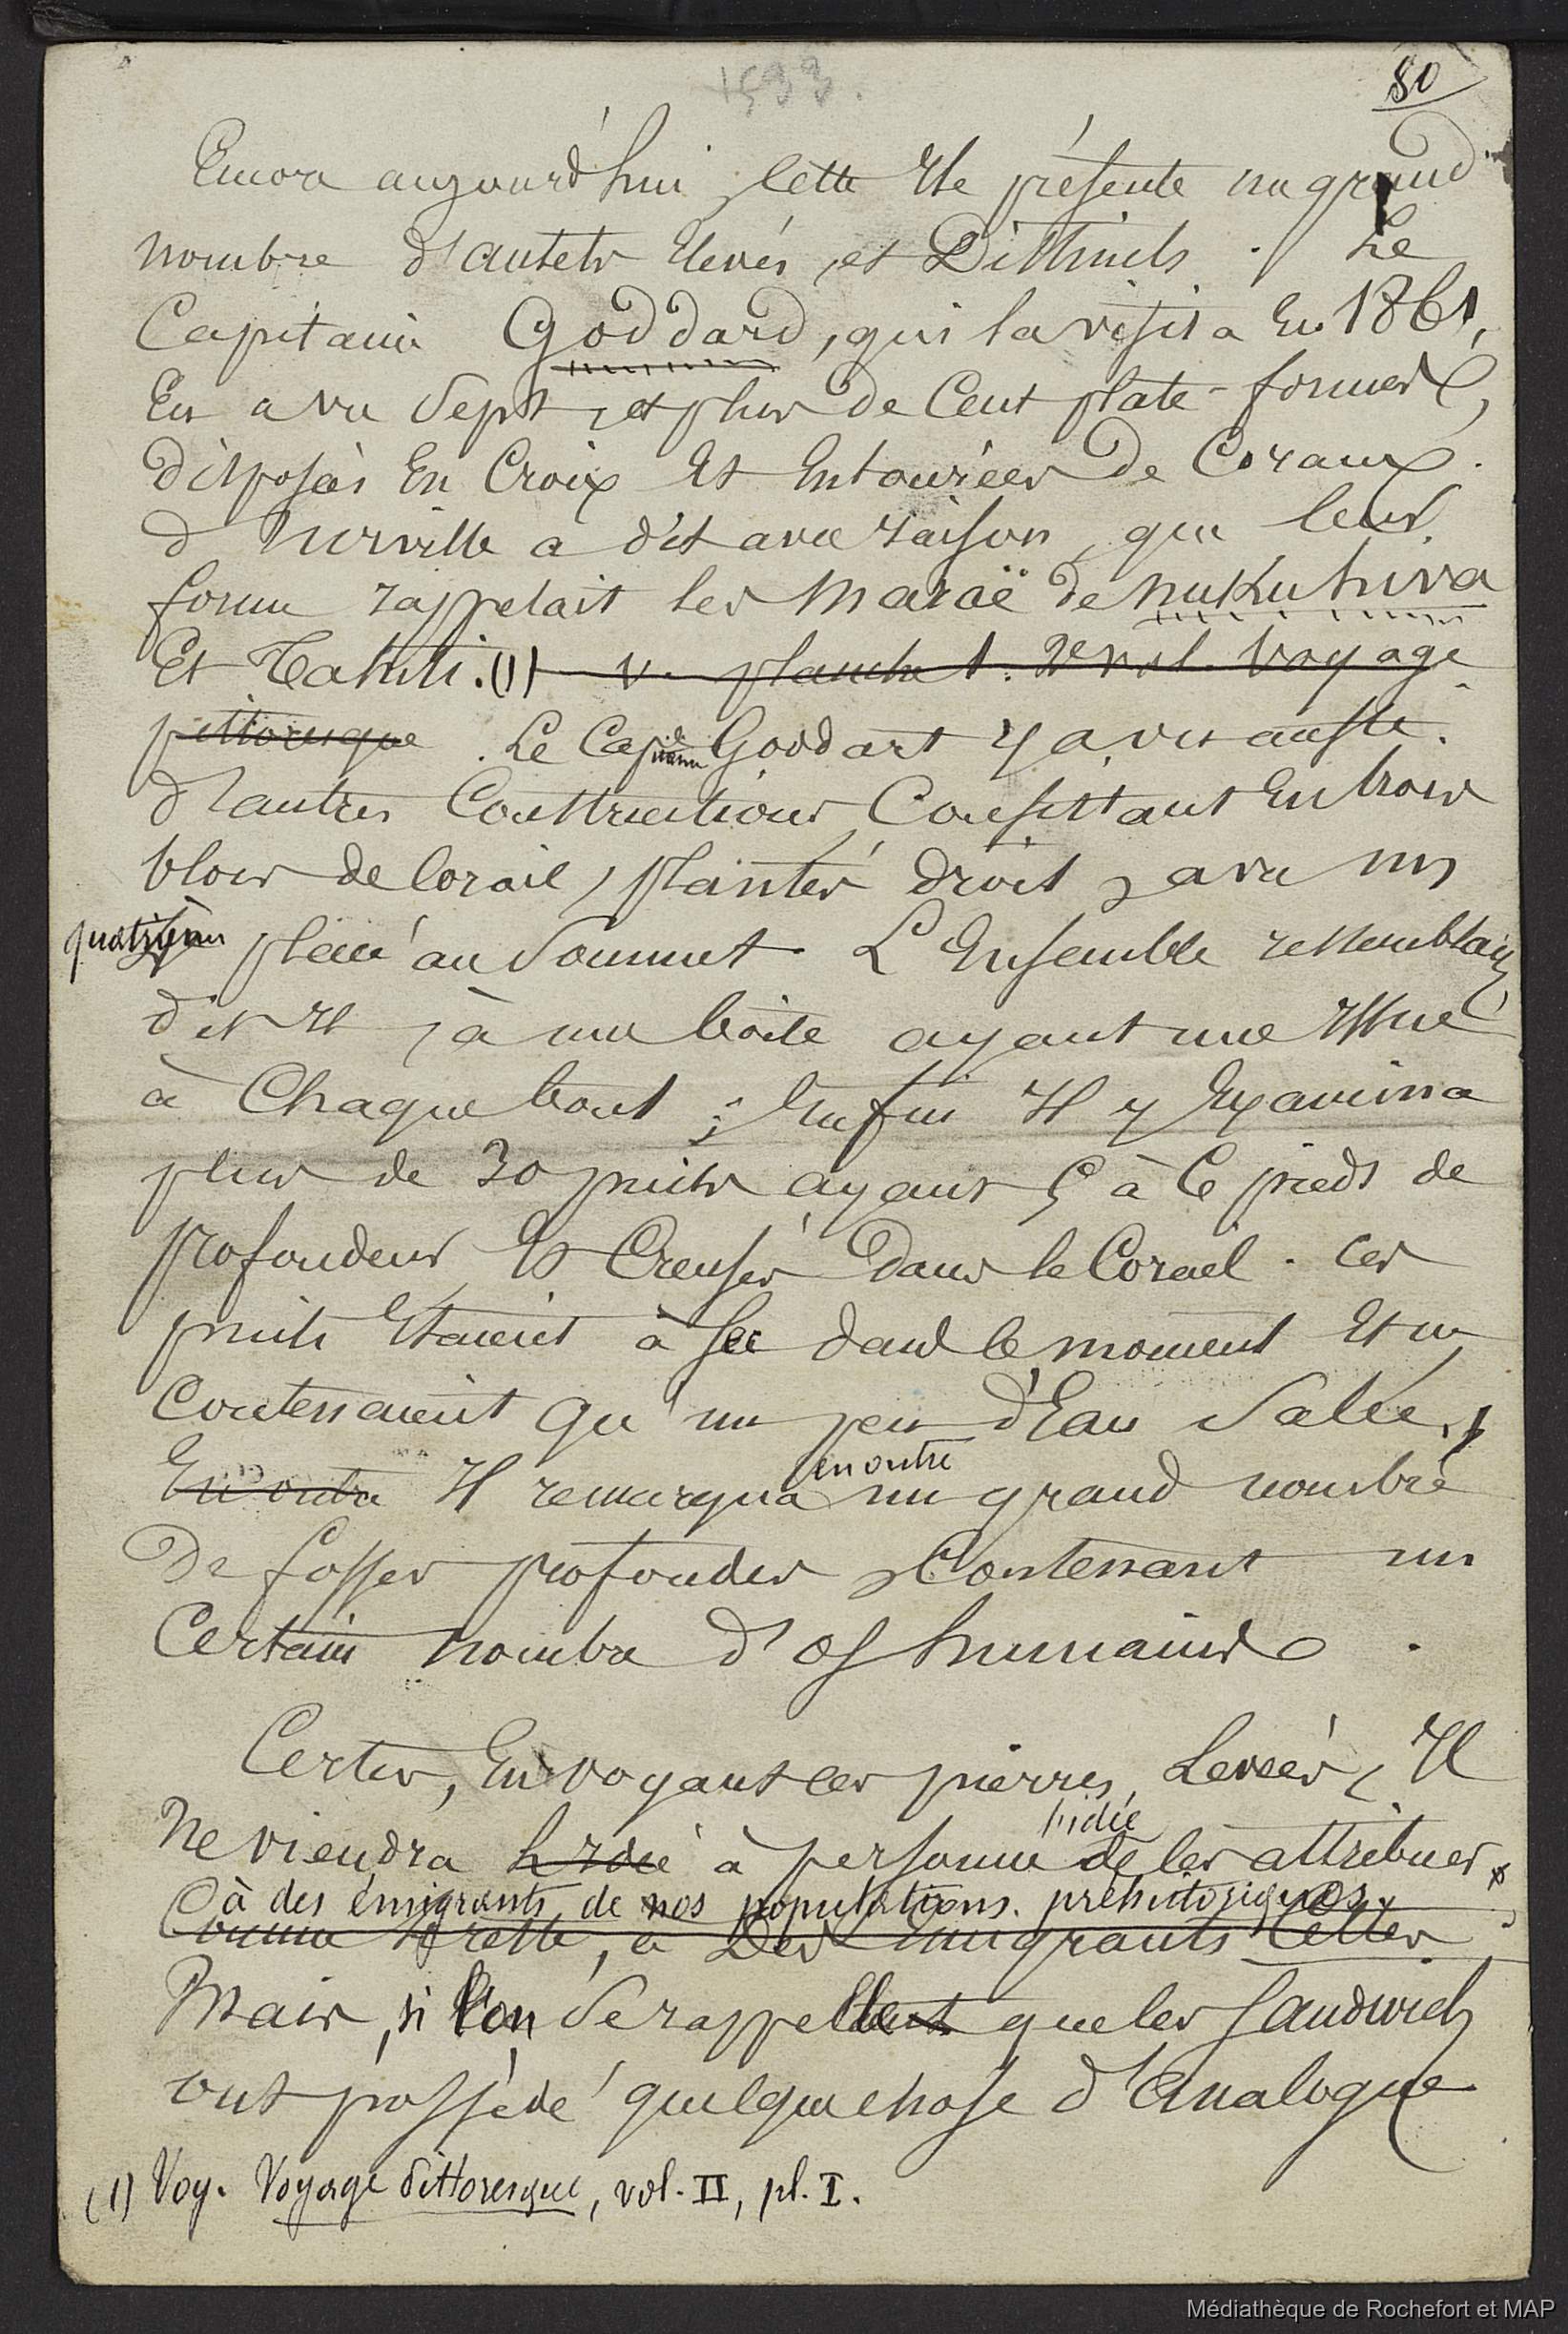 1533.
80
Encore aujourd'hui, cette Ile présente un grand
nombre d'autels élevés, et distincts. Le
Capitaine Goddard, qui la visita en 1861,
en a vu sept, et plus de cent plate-formes,
disposées en croix et entourées de coraux.
d'Urville a dit avec raison, que leur
forme rappelait les Maraë de Nukuhiva
Et Tahiti. (1) v. planche 1. 2e vol. Voyage
pittoresque. Le Capitaine Goddart y a vu aussi
d'autres constructions, consistant en trois
blocs de corail, plantés droit, avec un
quatrième placé au sommet. L'Ensemble ressemblait,
dit Il, à une boite ayant une issue
à chaque bout; enfin Il y examina
plus de 30 puits ayant 5 à 6 pieds de
profondeur, et creusés dans le corail. Ces
puits étaient à sec dans le moment et ne
contenaient qu'un peu d'Eau salée,
En outre Il remarqua en outre un grand nombre
de fosses profondes, contenant un
certain nombre d'os humains.
Certes, en voyant ces pierres levées, Il
ne viendra l'idée à personne l'idée de les attribuer
à des émigrants de nos populations préhistoriques.
à des émigrants Celtes
Mais, si l'on se rappelle que les Sandwich
ont possédé quelque chose d'analogue
(1) Voy. Voyage Pittoresque, vol. II, pl. I.
Médiathèque de Rochefort et MAP